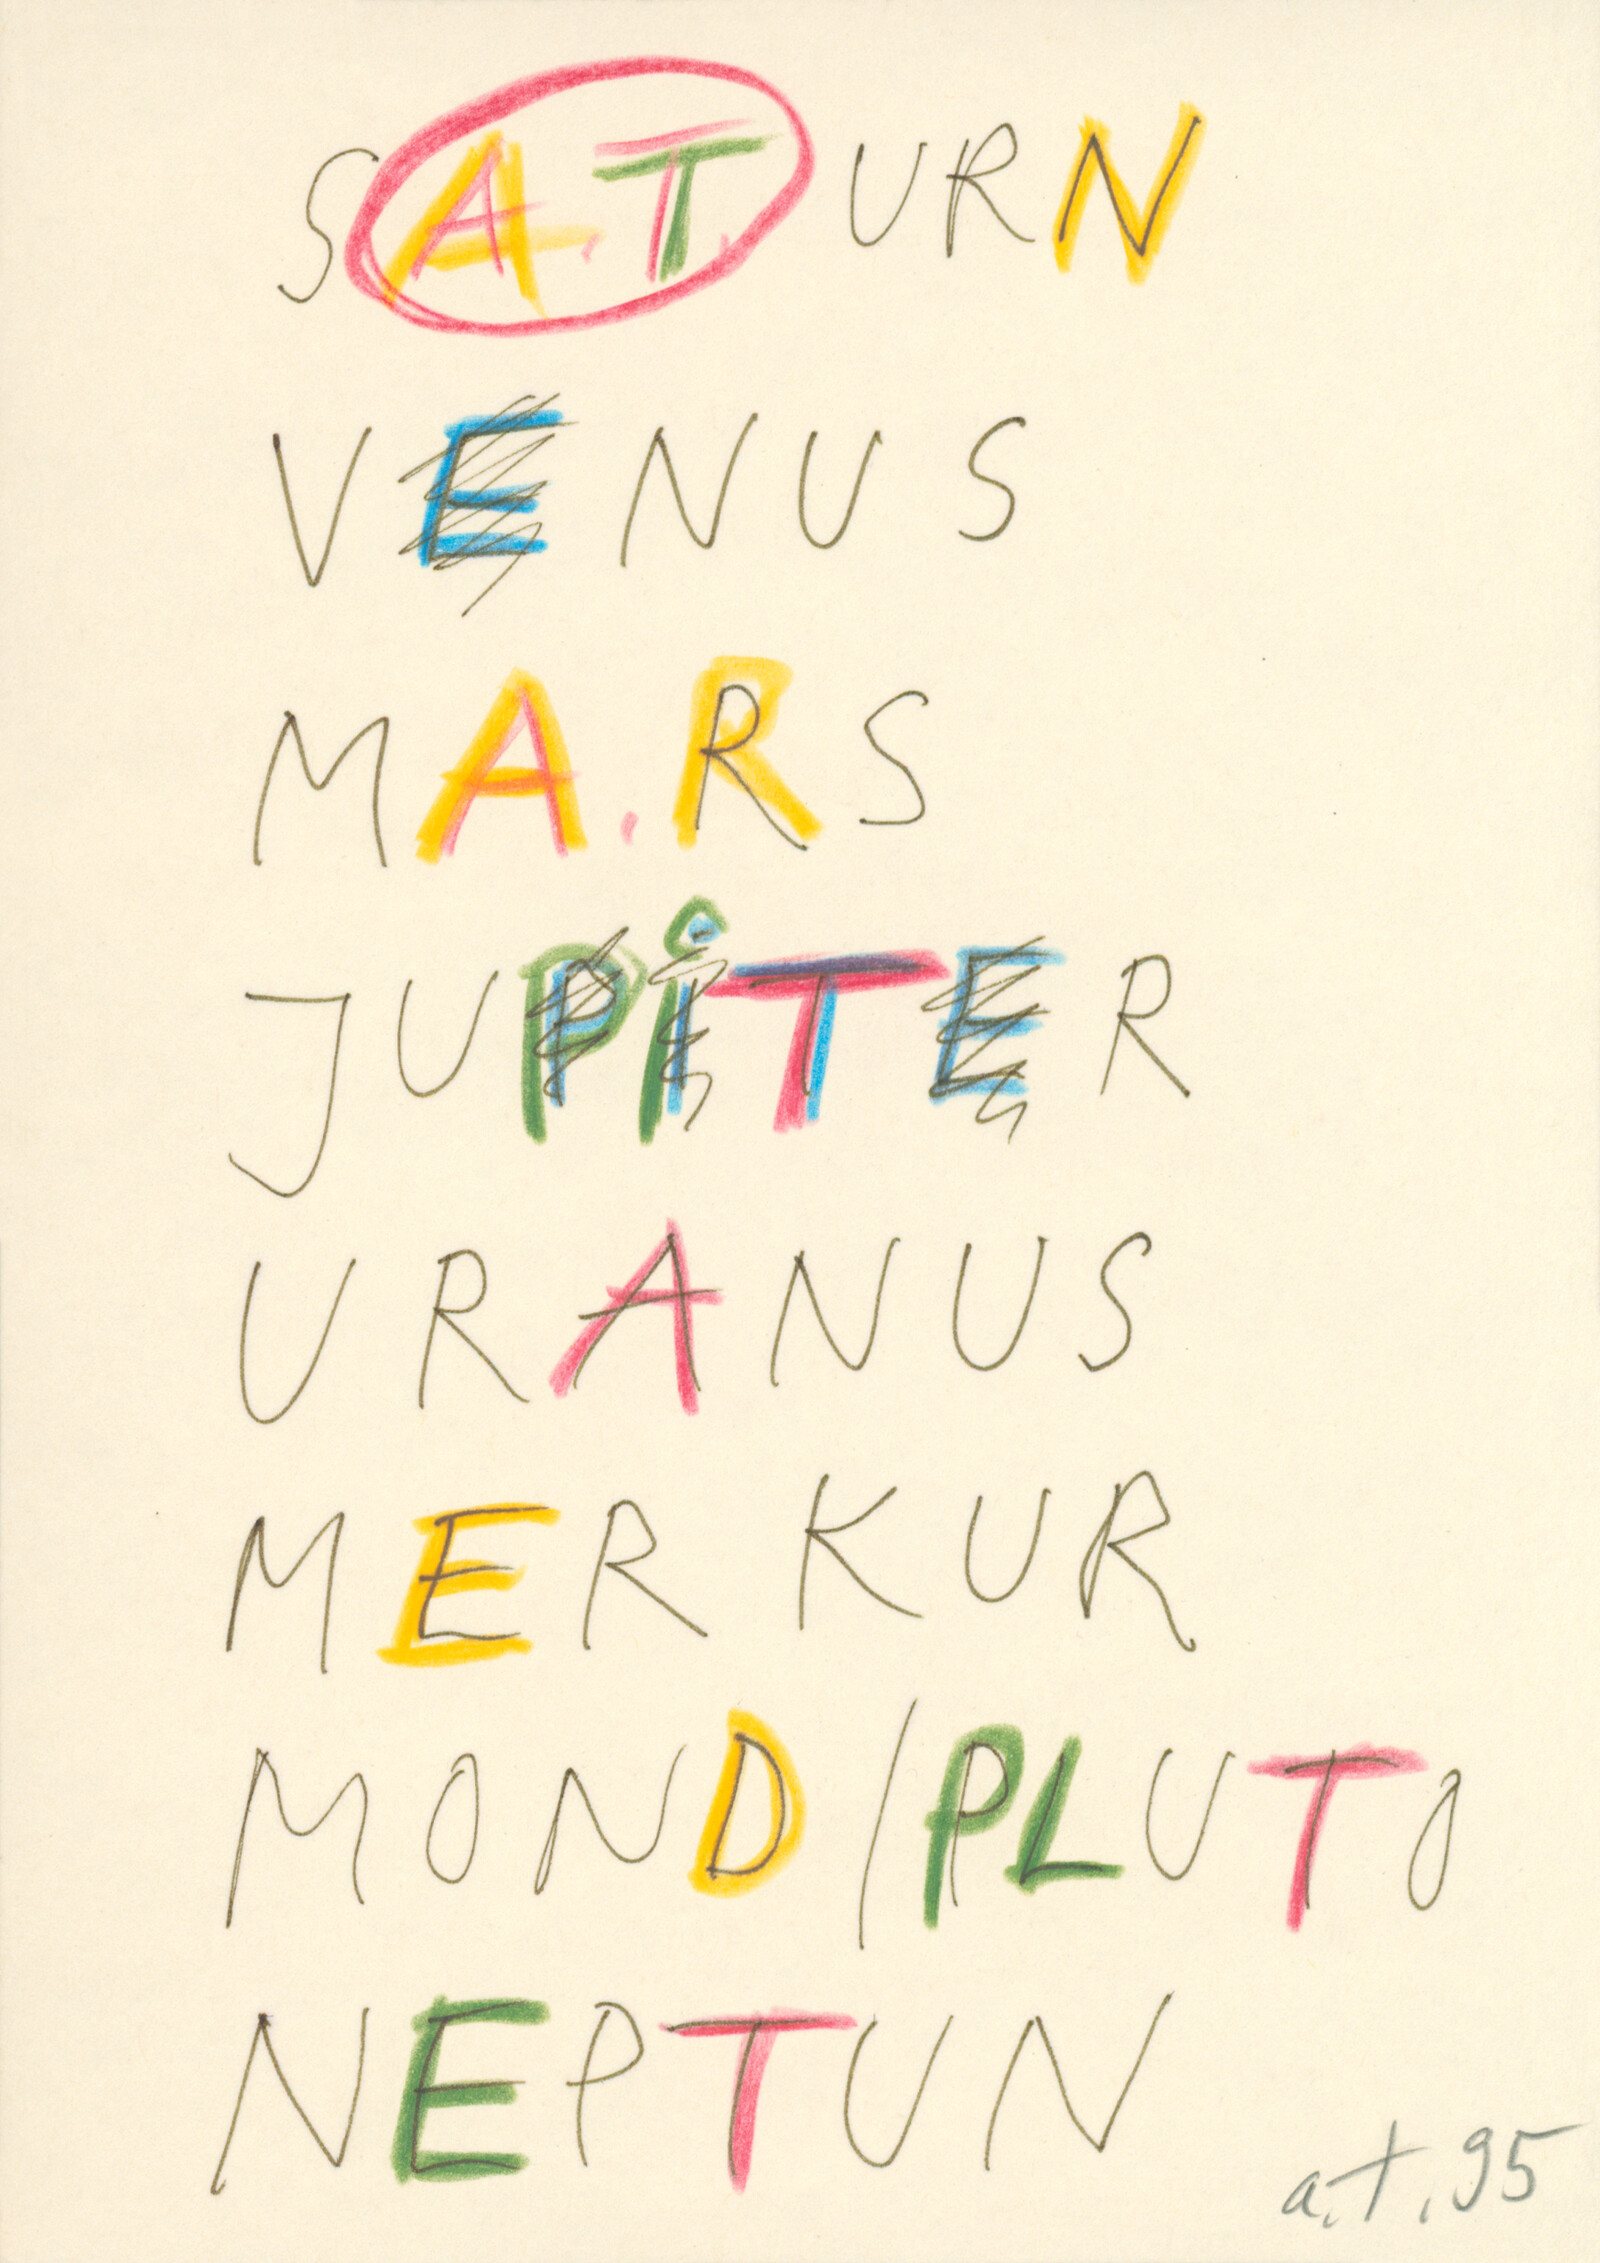 SA.T.URN
VENUS
MA.RS
JUPiTER
URANUS
MERKUR
MOND/PLUTO
NEPTUN
a.t.95